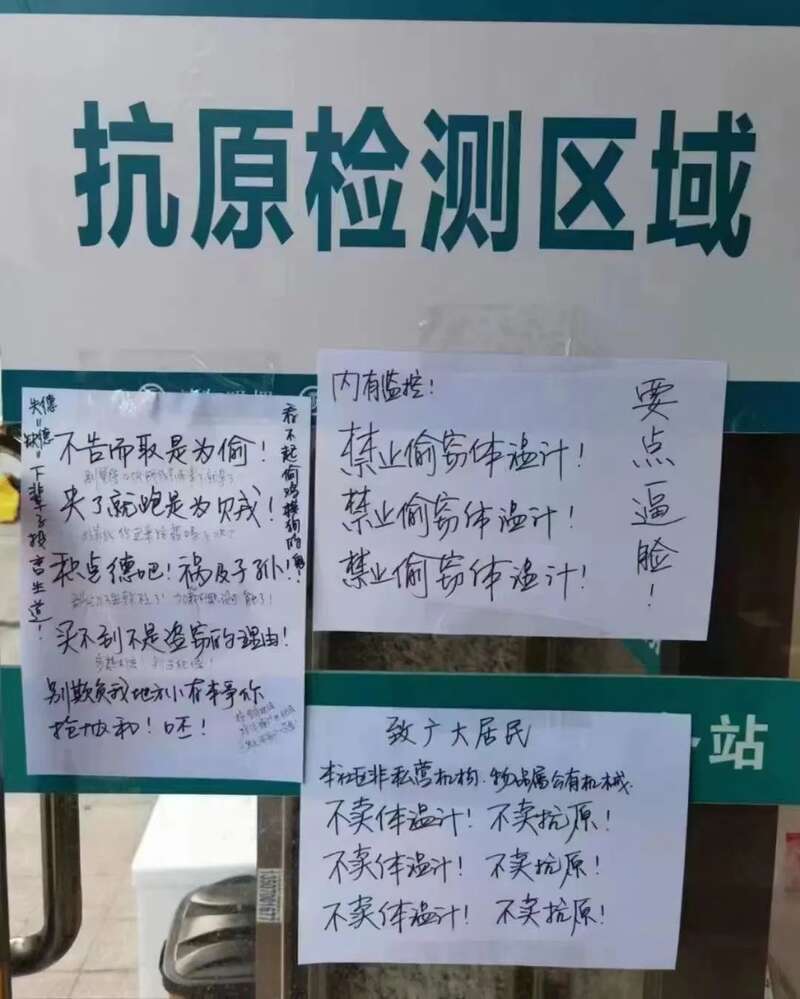 抗原检测区域
失德=缺德=下辈子投畜生道!
不告而取是为偷!
夹了就跑是为贼!
积点德吧!祸及子孙!
买不到不是盗窃的理由!
别欺负我地方小有本事你
抢协和!呸!
看不起偷鸡摸狗的
内有监控!
禁止偷窃体温计!
禁止偷窃体温计!
禁止偷窃体温计!
要点逼脸!
站
致广大居民
本社区非私营机构.物品属公有机械.
不卖体温计!不卖抗原!
不卖体温计!不卖抗原!
不卖体温计!不卖抗原!